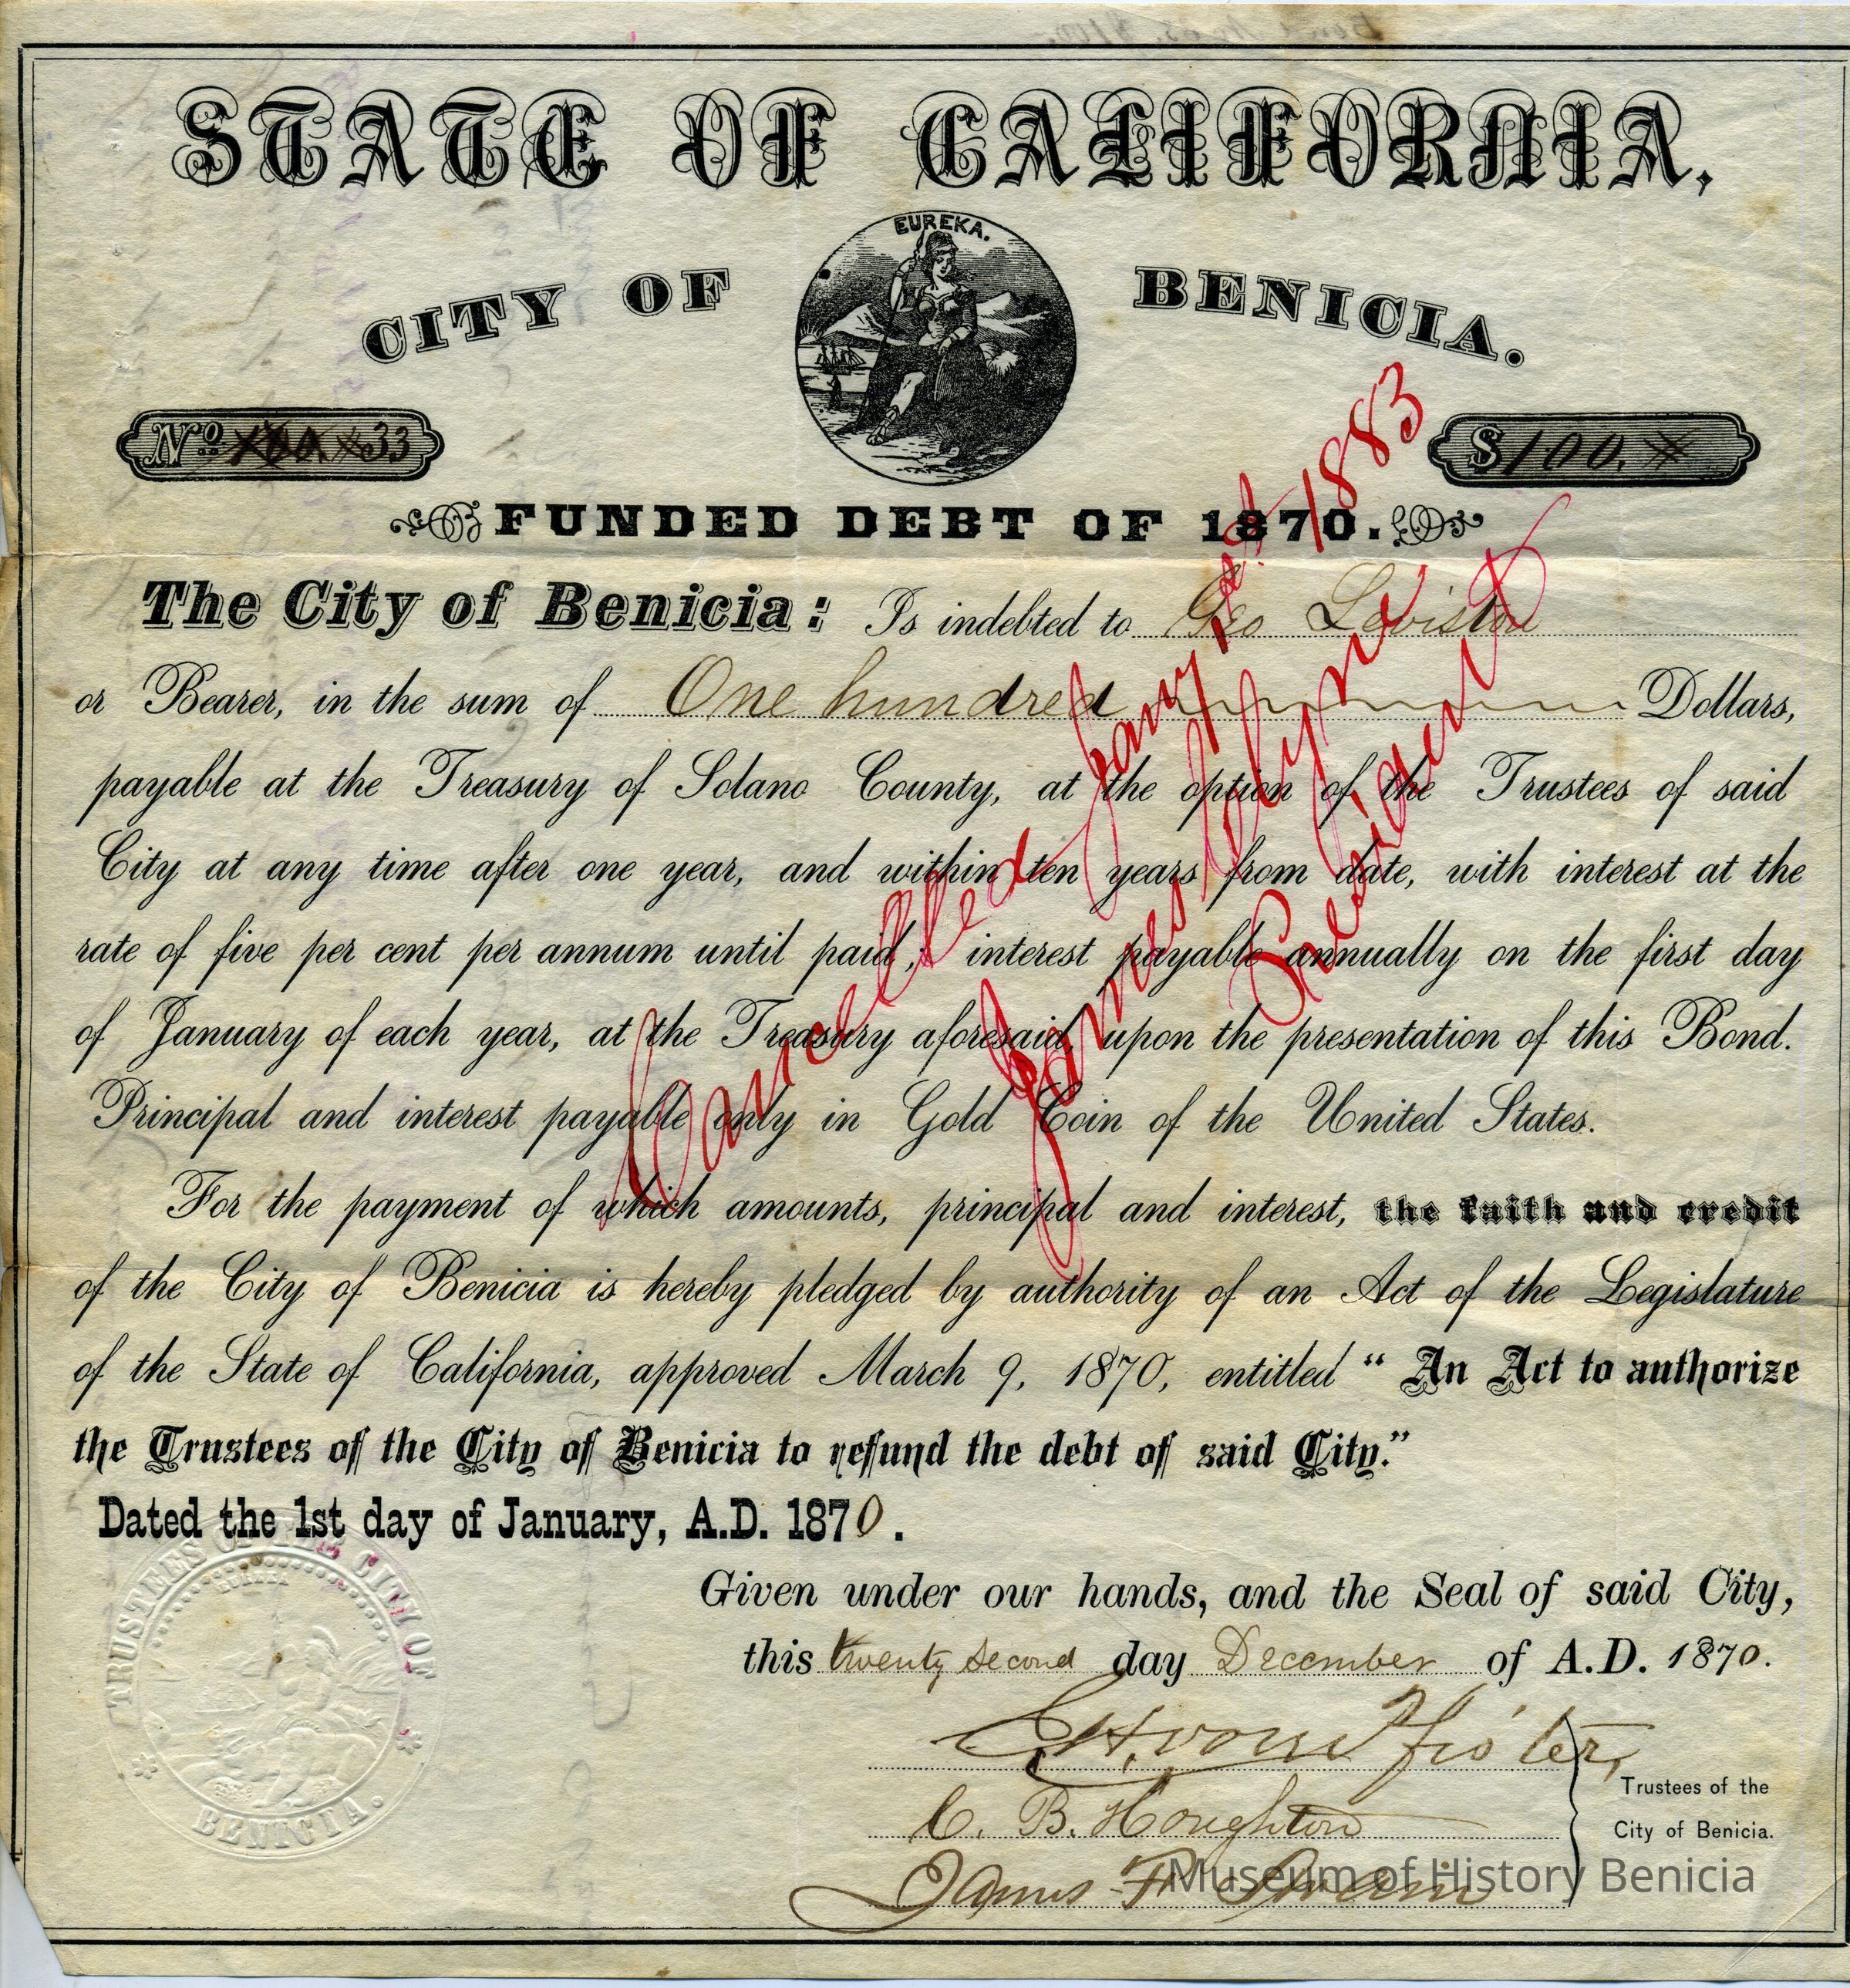 STATE OF CALIFORNIA.
EUREKA.
CITY OF BENICIA.
No 33
$100.
FUNDED DEBT OF 1870.
The City of Benicia: Is indebted to Geo Loviston
or Bearer, in the sum of One hundred Dollars,
payable at the Treasury of Solano County, at the option of the Trustees of said
City at any time after one year, and within ten years from date, with interest at the
rate of five per cent per annum until paid; interest payable annually on the first day
of January of each year, at the Treasury aforesaid, upon the presentation of this Bond.
Principal and interest payable only in Gold Coin of the United States.
For the payment of which amounts, principal and interest, the faith and credit
of the City of Benicia is hereby pledged by authority of an Act of the Legislature
of the State of California, approved March 9, 1870, entitled “An Act to authorize
the Trustees of the City of Benicia to refund the debt of said City.”
Dated the 1st day of January, A.D. 1870.
Given under our hands, and the Seal of said City,
this twenty second day December of A.D. 1870.
C. B. Houghton
James F.
Trustees of the
City of Benicia.
Cancelled Jany 1st 1883
James Clyne
President
TRUSTEES OF THE CITY OF
EUREKA
BENICIA.
Museum of History Benicia